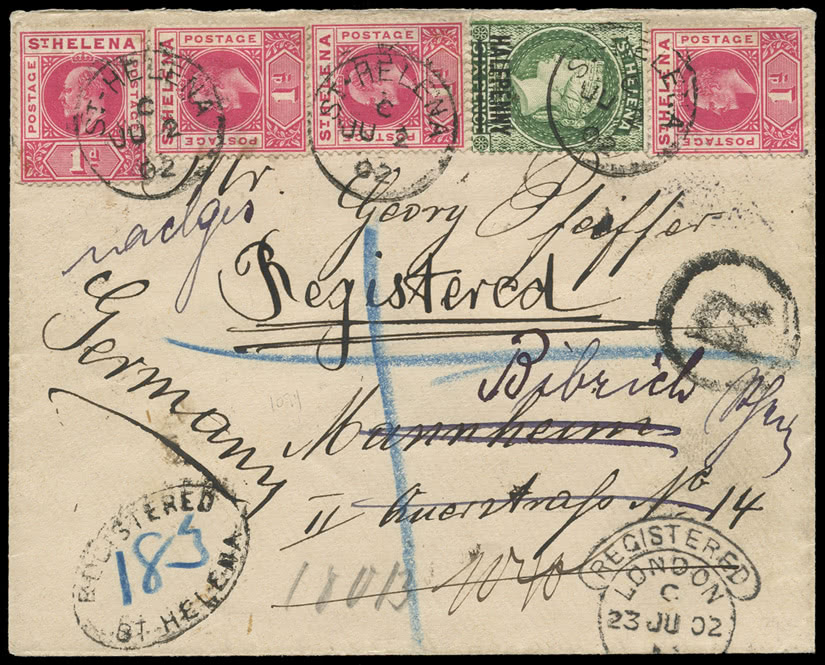 POSTAGE ST HELENA POSTAGE 1d
POSTAGE ST HELENA POSTAGE 1d
POSTAGE ST HELENA POSTAGE 1d
ST HELENA HALFPENNY
POSTAGE ST HELENA POSTAGE 1d
ST-HELENA C JU 2 02
ST-HELENA C JU 2 02
ST-HELENA C JU 02
Mr. Georg Pfeiffer
Registered
R
Germany
Bibrich
Mannheim
II Querstraße No 14
REGISTERED
183
ST. HELENA
REGISTERED
LONDON
C
23 JU 02